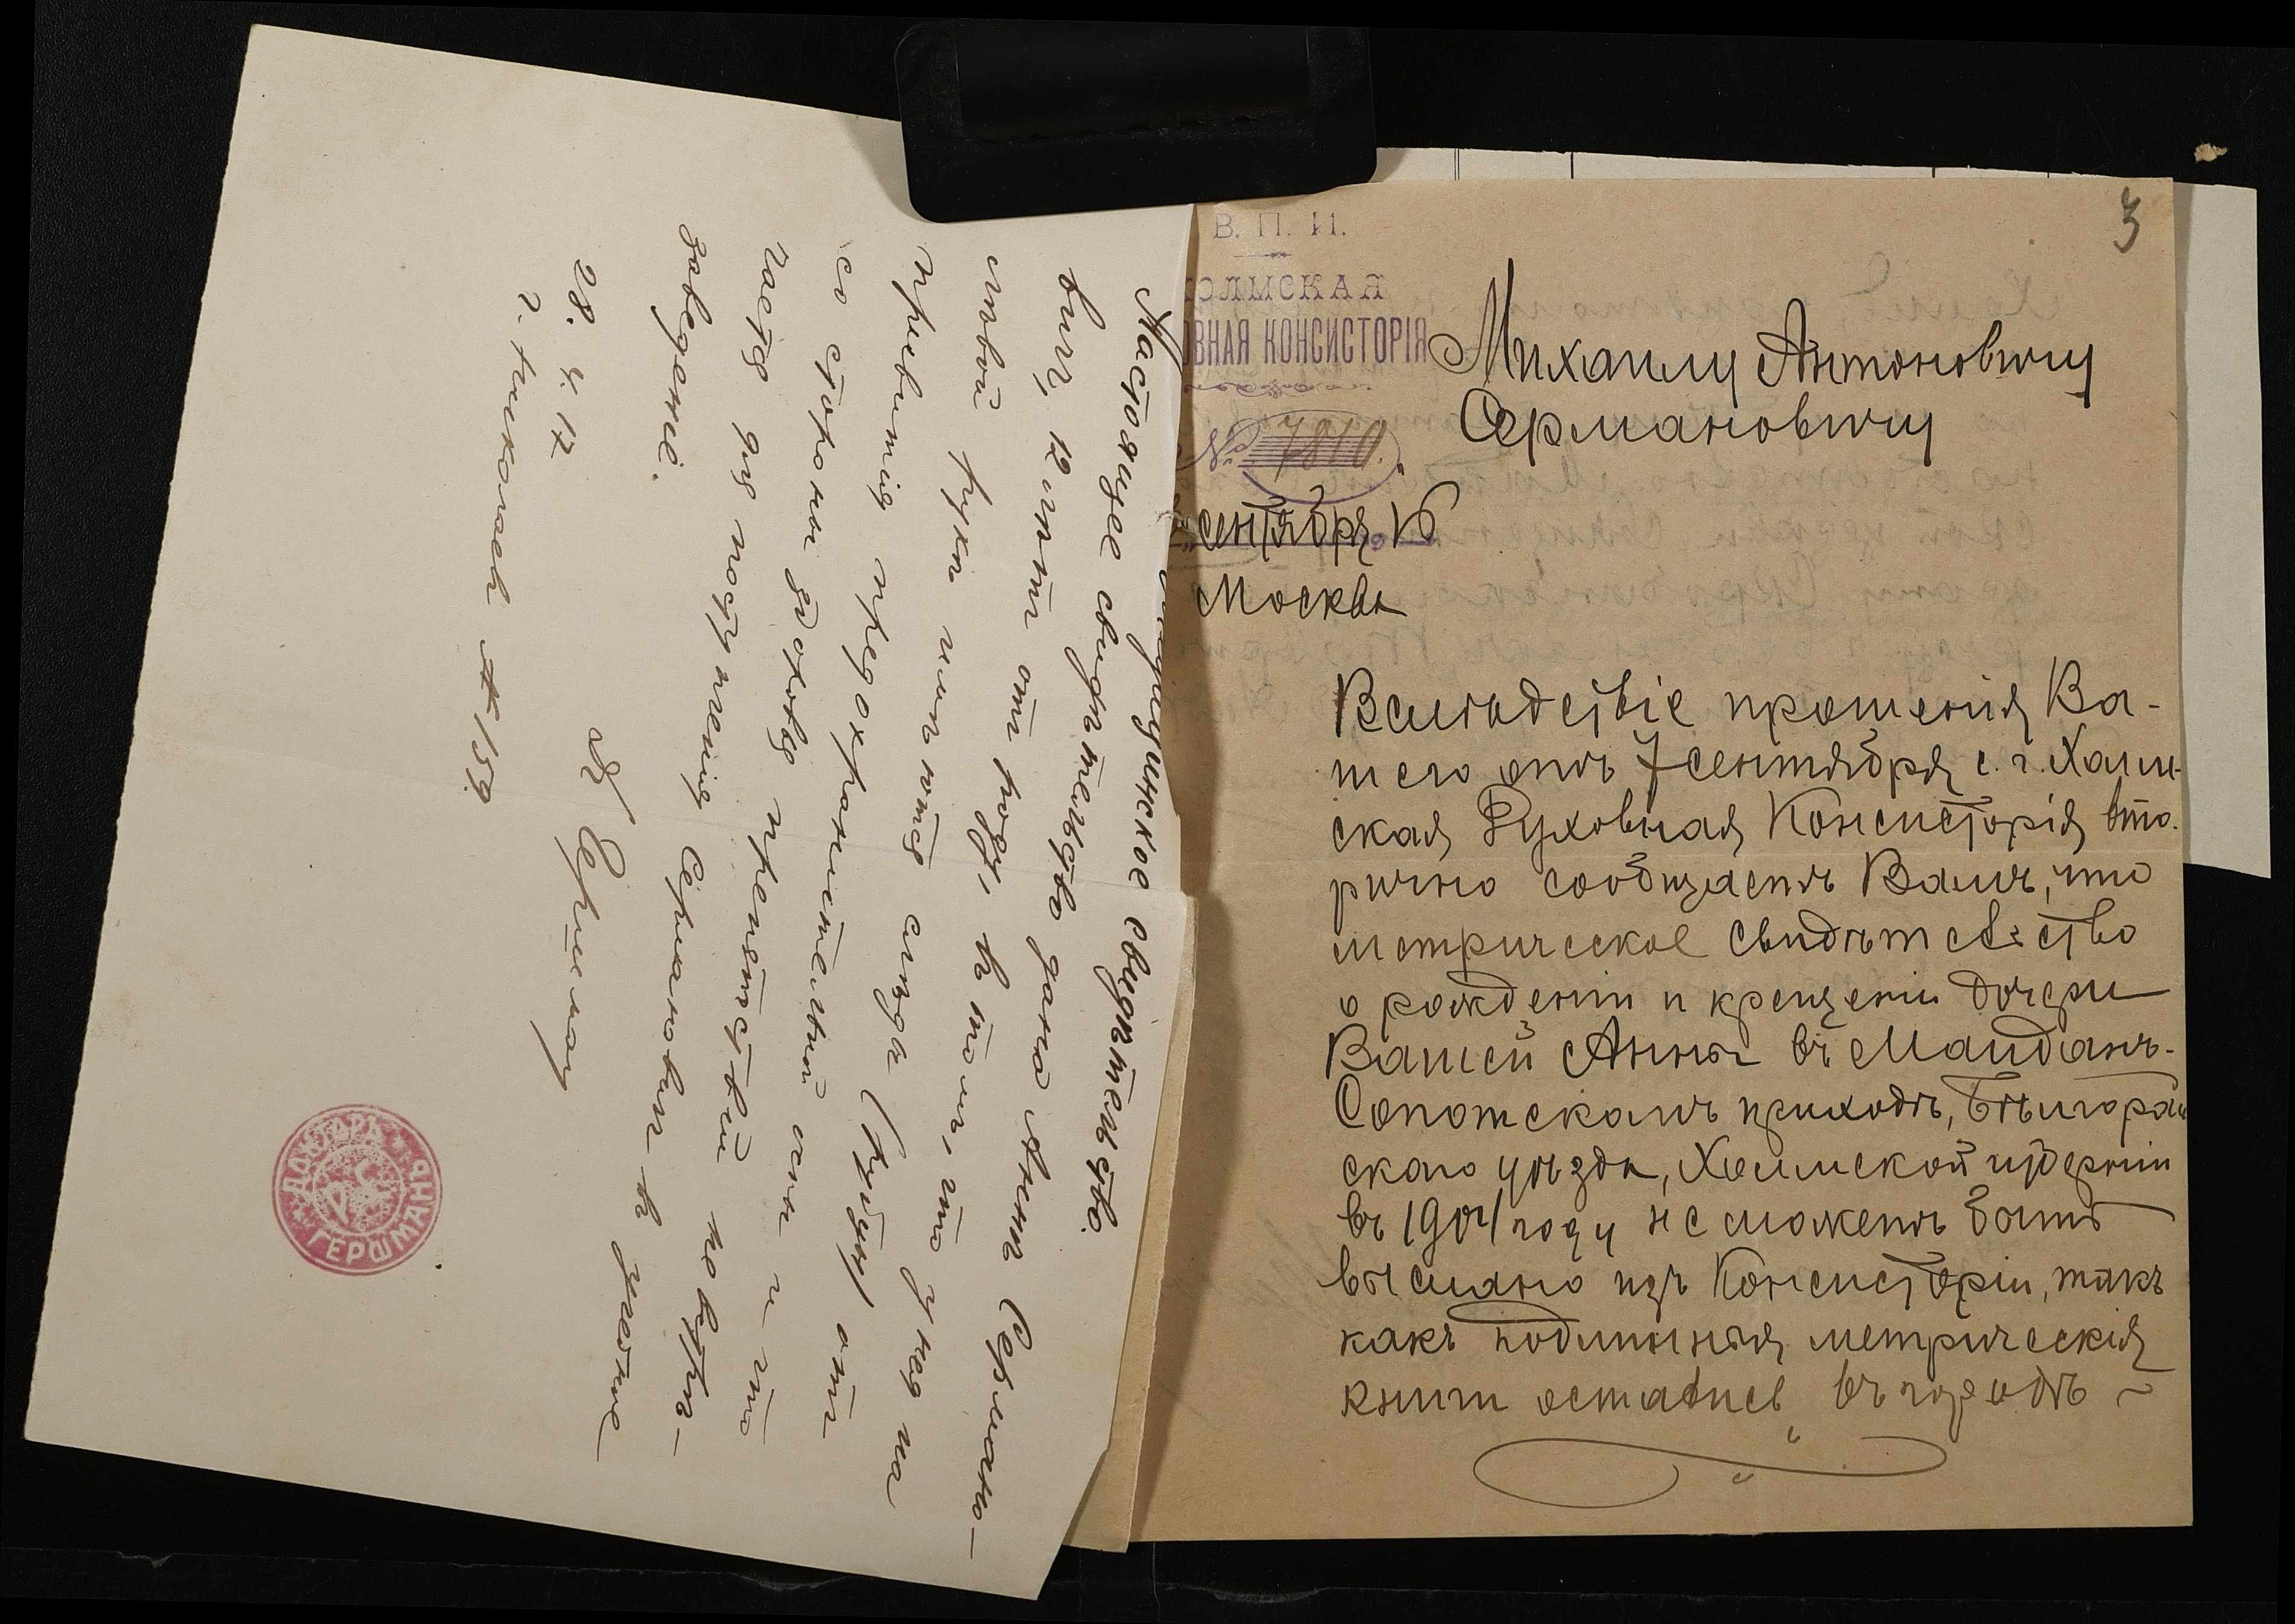 Медицинское свидѣтельство.
Настоящее свидѣтельство дано Аннѣ Сермано-
вичъ, 12 лѣтъ отъ роду, въ томъ, что у нея на
лѣвой рукѣ имѣются слѣды (рубцы) отъ
привитія предохранительной оспы и что
со стороны здоровья препятствій не встрѣ-
чается для поступленія Сермановичъ въ учебные
заведенія.
28. 4. 17
г. Николаевъ № 159
Д Гершманъ
ДОКТОРА ГЕРШМАНЪ
3
В. П. И.
ХОЛМСКАЯ
ОВНАЯ КОНСИСТОРІЯ
№ 7810.
сентября 16
Москва
Михаилу Антоновичу
Сермановичу
Вслѣдствіе прошенія Ва-
шего отъ 7 сентября с. г. Холм-
ская Духовная Консисторія вто-
рично сообщаетъ Вамъ, что
метрическое свидѣтельство
о рожденіи и крещеніи дочери
Вашей Анны въ Майданъ-
Сопотскомъ приходѣ, Бѣлгорай
скаго уѣзда, Холмской губерніи
въ 1904 году не можетъ быть
выслано изъ Консисторіи, такъ
какъ подлинныя метрическія
книги остались въ городѣ